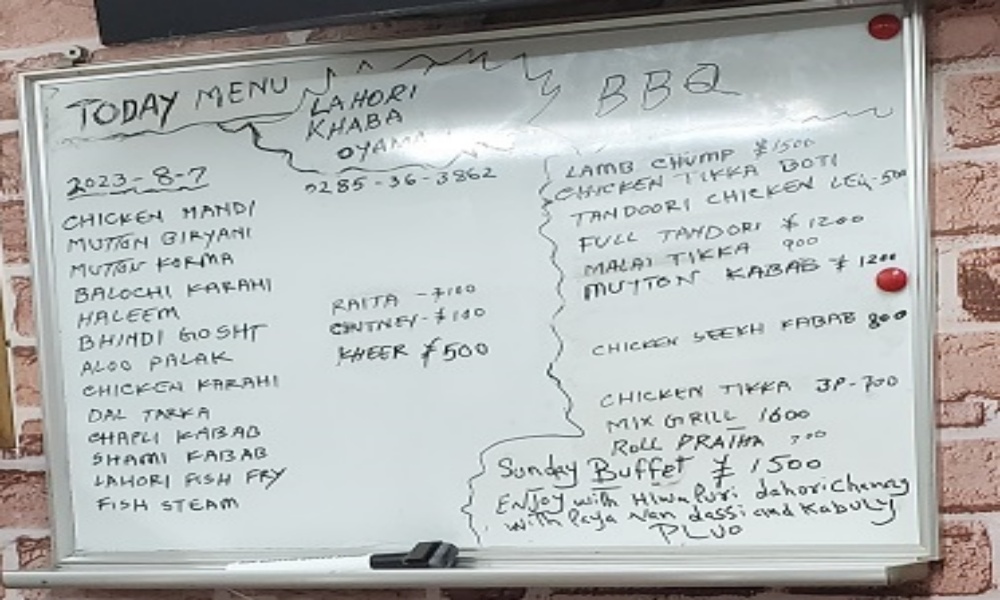 TODAY MENU
LAHORI
KHABA
OYAMA
2023-8-7
0285-36-3862
CHICKEN MANDI
MUTTON BIRYANI
MUTTON KORMA
BALOCHI KARAHI
HALEEM
BHINDI GOSHT
ALOO PALAK
CHICKEN KARAHI
DAL TARKA
CHAPLI KABAB
SHAMI KABAB
LAHORI FISH FRY
FISH STEAM
RAITA - ¥100
CHTNEY - ¥100
KHEER ¥500
BBQ
LAMB CHUMP ¥1500
CHICKEN TIKKA BOTI
TANDOORI CHICKEN LEG-500
FULL TANDORI ¥1200
MALAI TIKKA 900
MUTTON KABAB ¥1200
CHICKEN SEEKH KABAB 800
CHICKEN TIKKA 3P-700
MIX GRILL 1600
Roll PRATHA 700
Sunday Buffet ¥1500
Enjoy with Hlwa Puri dahori Chanay
with Paya Nan dassi and Kabuly
PLUO